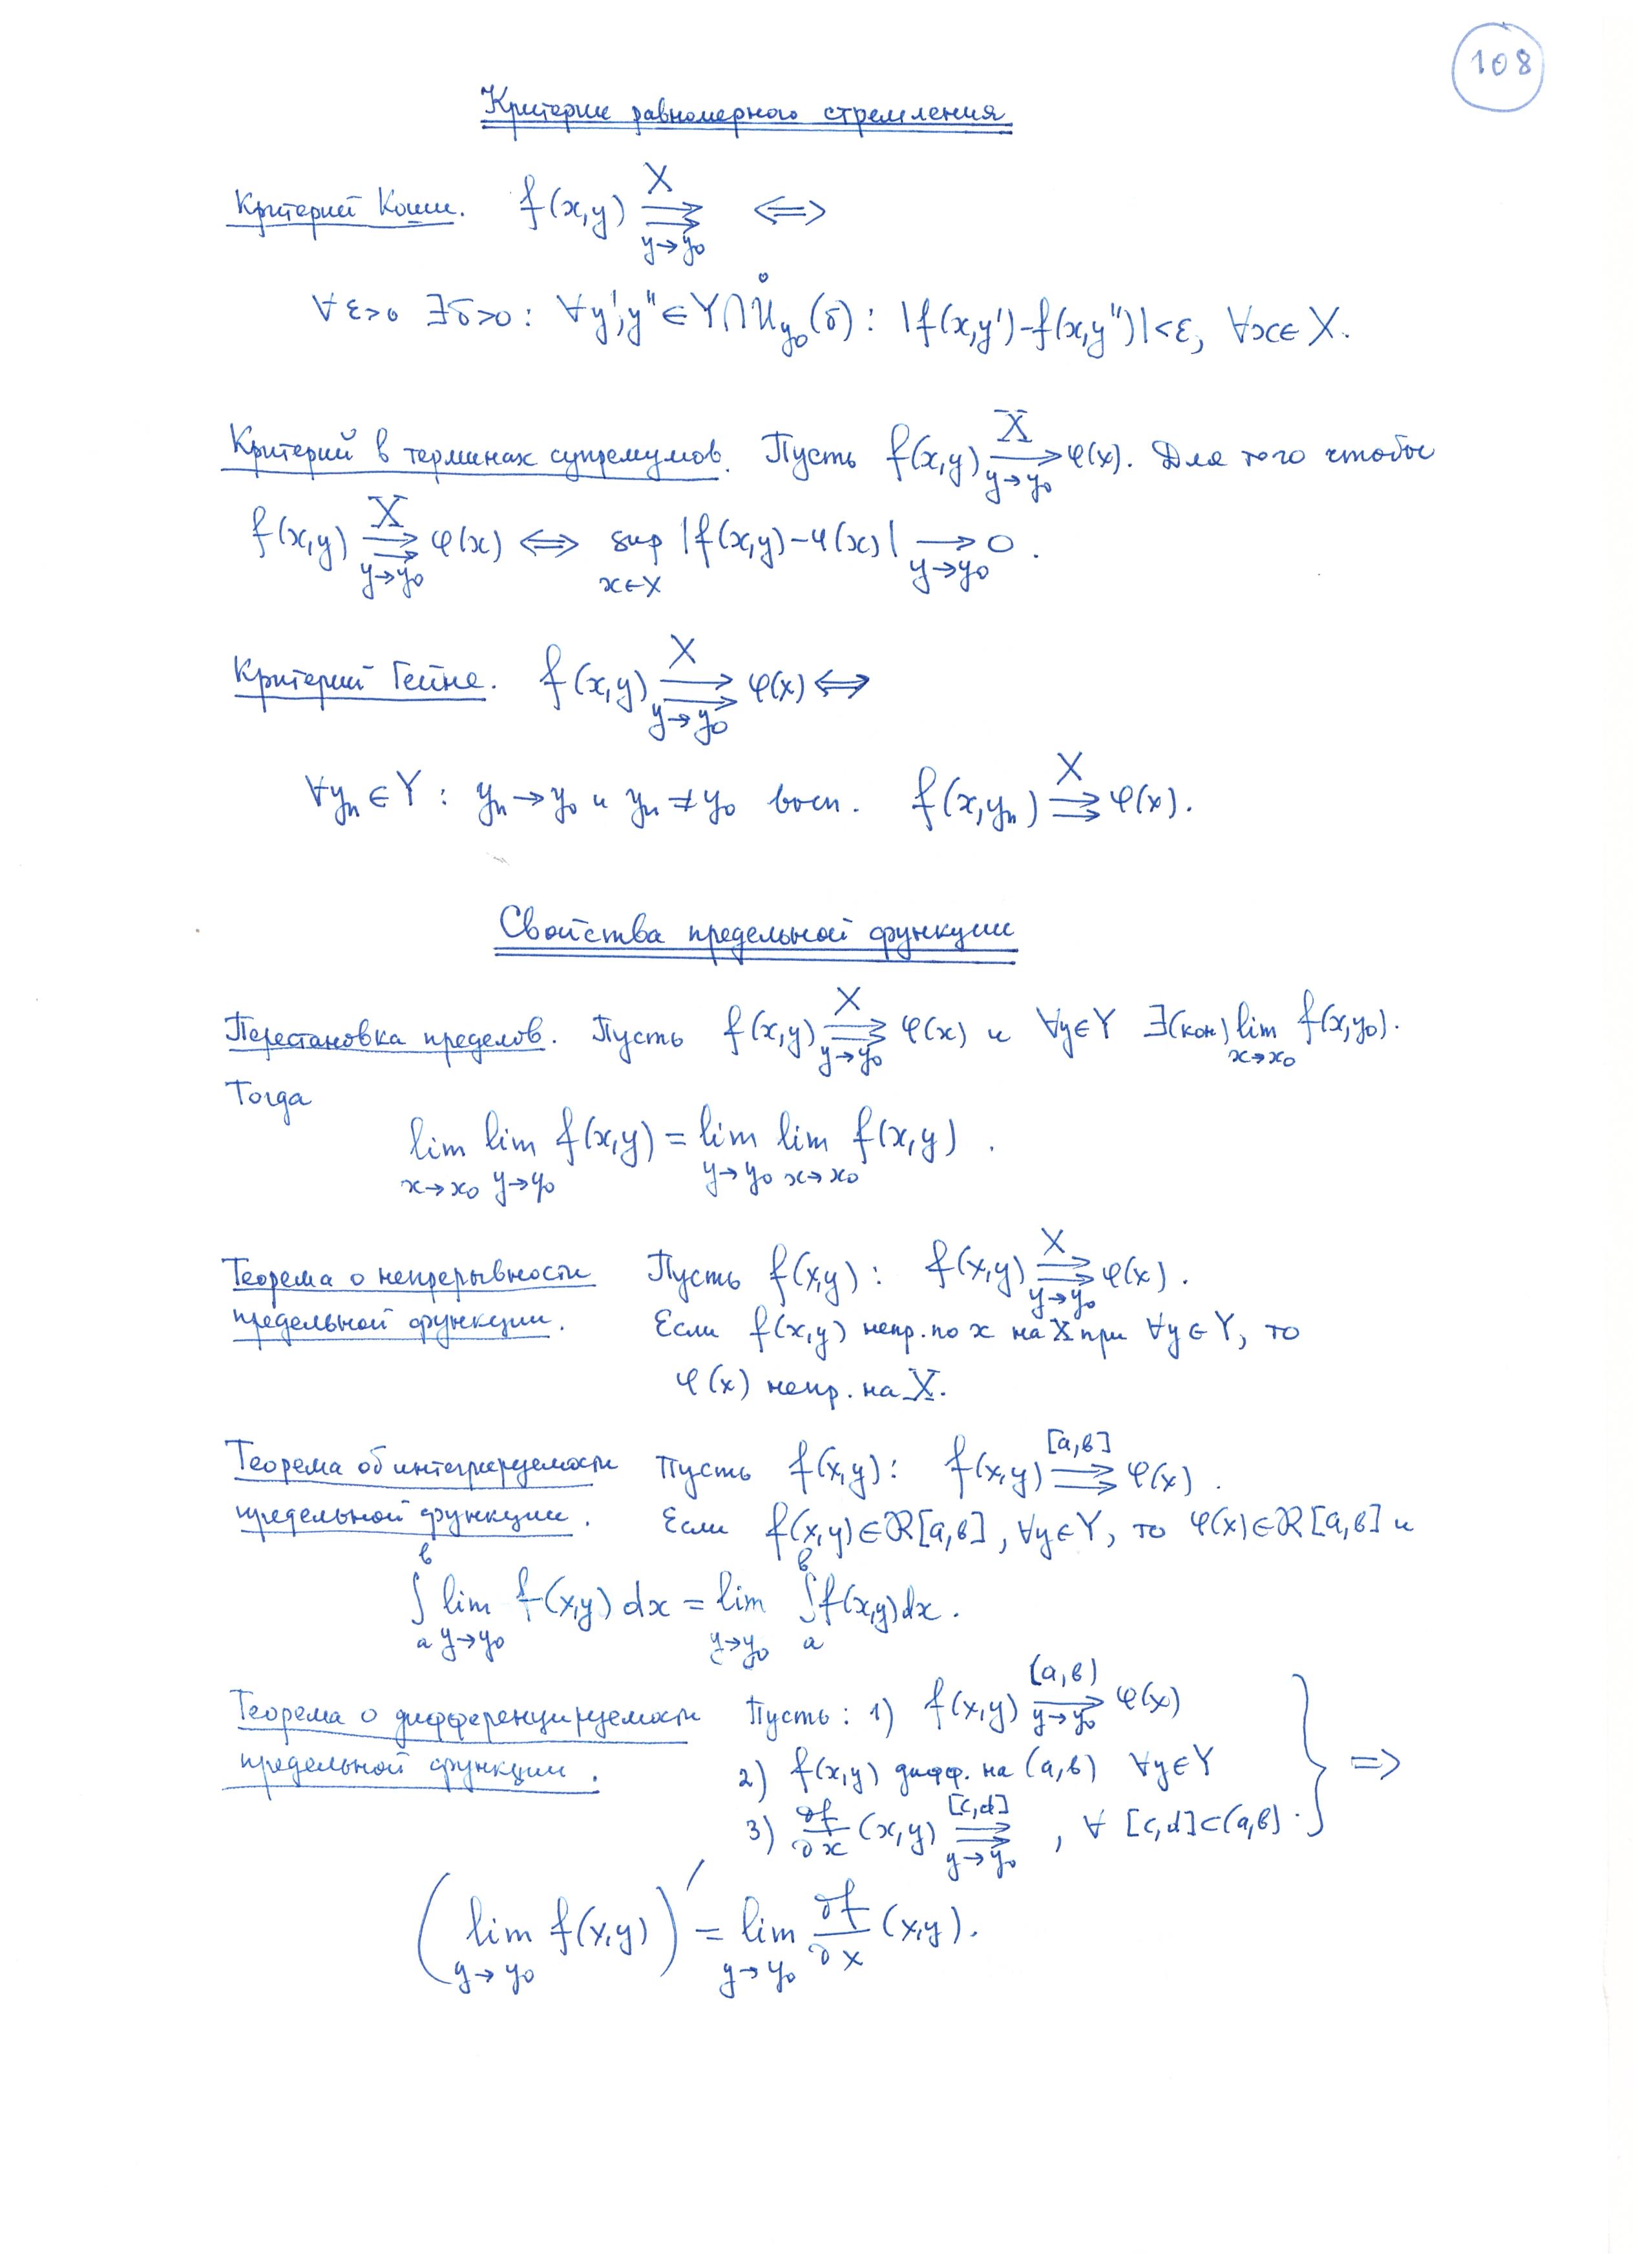 108
Критерии равномерного стремления
Критерий Коши. f(x,y) ⇉^X_{y→y₀} ⟺
∀ε>0 ∃δ>0: ∀y',y"∈Y∩Ů_{y₀}(δ): |f(x,y')-f(x,y")|<ε, ∀x∈X.
Критерий в терминах супремумов. Пусть f(x,y) →^X_{y→y₀} φ(x). Для того чтобы
f(x,y) ⇉^X_{y→y₀} φ(x) ⟺ sup_{x∈X} |f(x,y)-φ(x)| →_{y→y₀} 0.
Критерий Гейне. f(x,y) ⇉^X_{y→y₀} φ(x) ⟺
∀yₙ∈Y: yₙ→y₀ и yₙ≠y₀ вып. f(x,yₙ) ⇉^X φ(x).
Свойства предельной функции
Перестановка пределов. Пусть f(x,y) ⇉^X_{y→y₀} φ(x) и ∀y∈Y ∃(кон) lim_{x→x₀} f(x,y₀).
Тогда
lim_{x→x₀} lim_{y→y₀} f(x,y) = lim_{y→y₀} lim_{x→x₀} f(x,y).
Теорема о непрерывности Пусть f(x,y): f(x,y) ⇉^X_{y→y₀} φ(x).
предельной функции. Если f(x,y) непр. по x на X при ∀y∈Y, то
φ(x) непр. на X.
Теорема об интегрируемости Пусть f(x,y): f(x,y) ⇉^{[a,в]} φ(x).
предельной функции. Если f(x,y)∈ℝ[a,в], ∀y∈Y, то φ(x)∈ℝ[a,в] и
∫_a^в lim_{y→y₀} f(x,y)dx = lim_{y→y₀} ∫_a^в f(x,y)dx.
Теорема о дифференцируемости Пусть: 1) f(x,y) →^{(a,в)}_{y→y₀} φ(x)
предельной функции. 2) f(x,y) дифф. на (a,в) ∀y∈Y } ⟹
3) ∂f/∂x (x,y) ⇉^{[c,d]}_{y→y₀}, ∀ [c,d]⊂(a,в).
(lim_{y→y₀} f(x,y))' = lim_{y→y₀} ∂f/∂x (x,y).